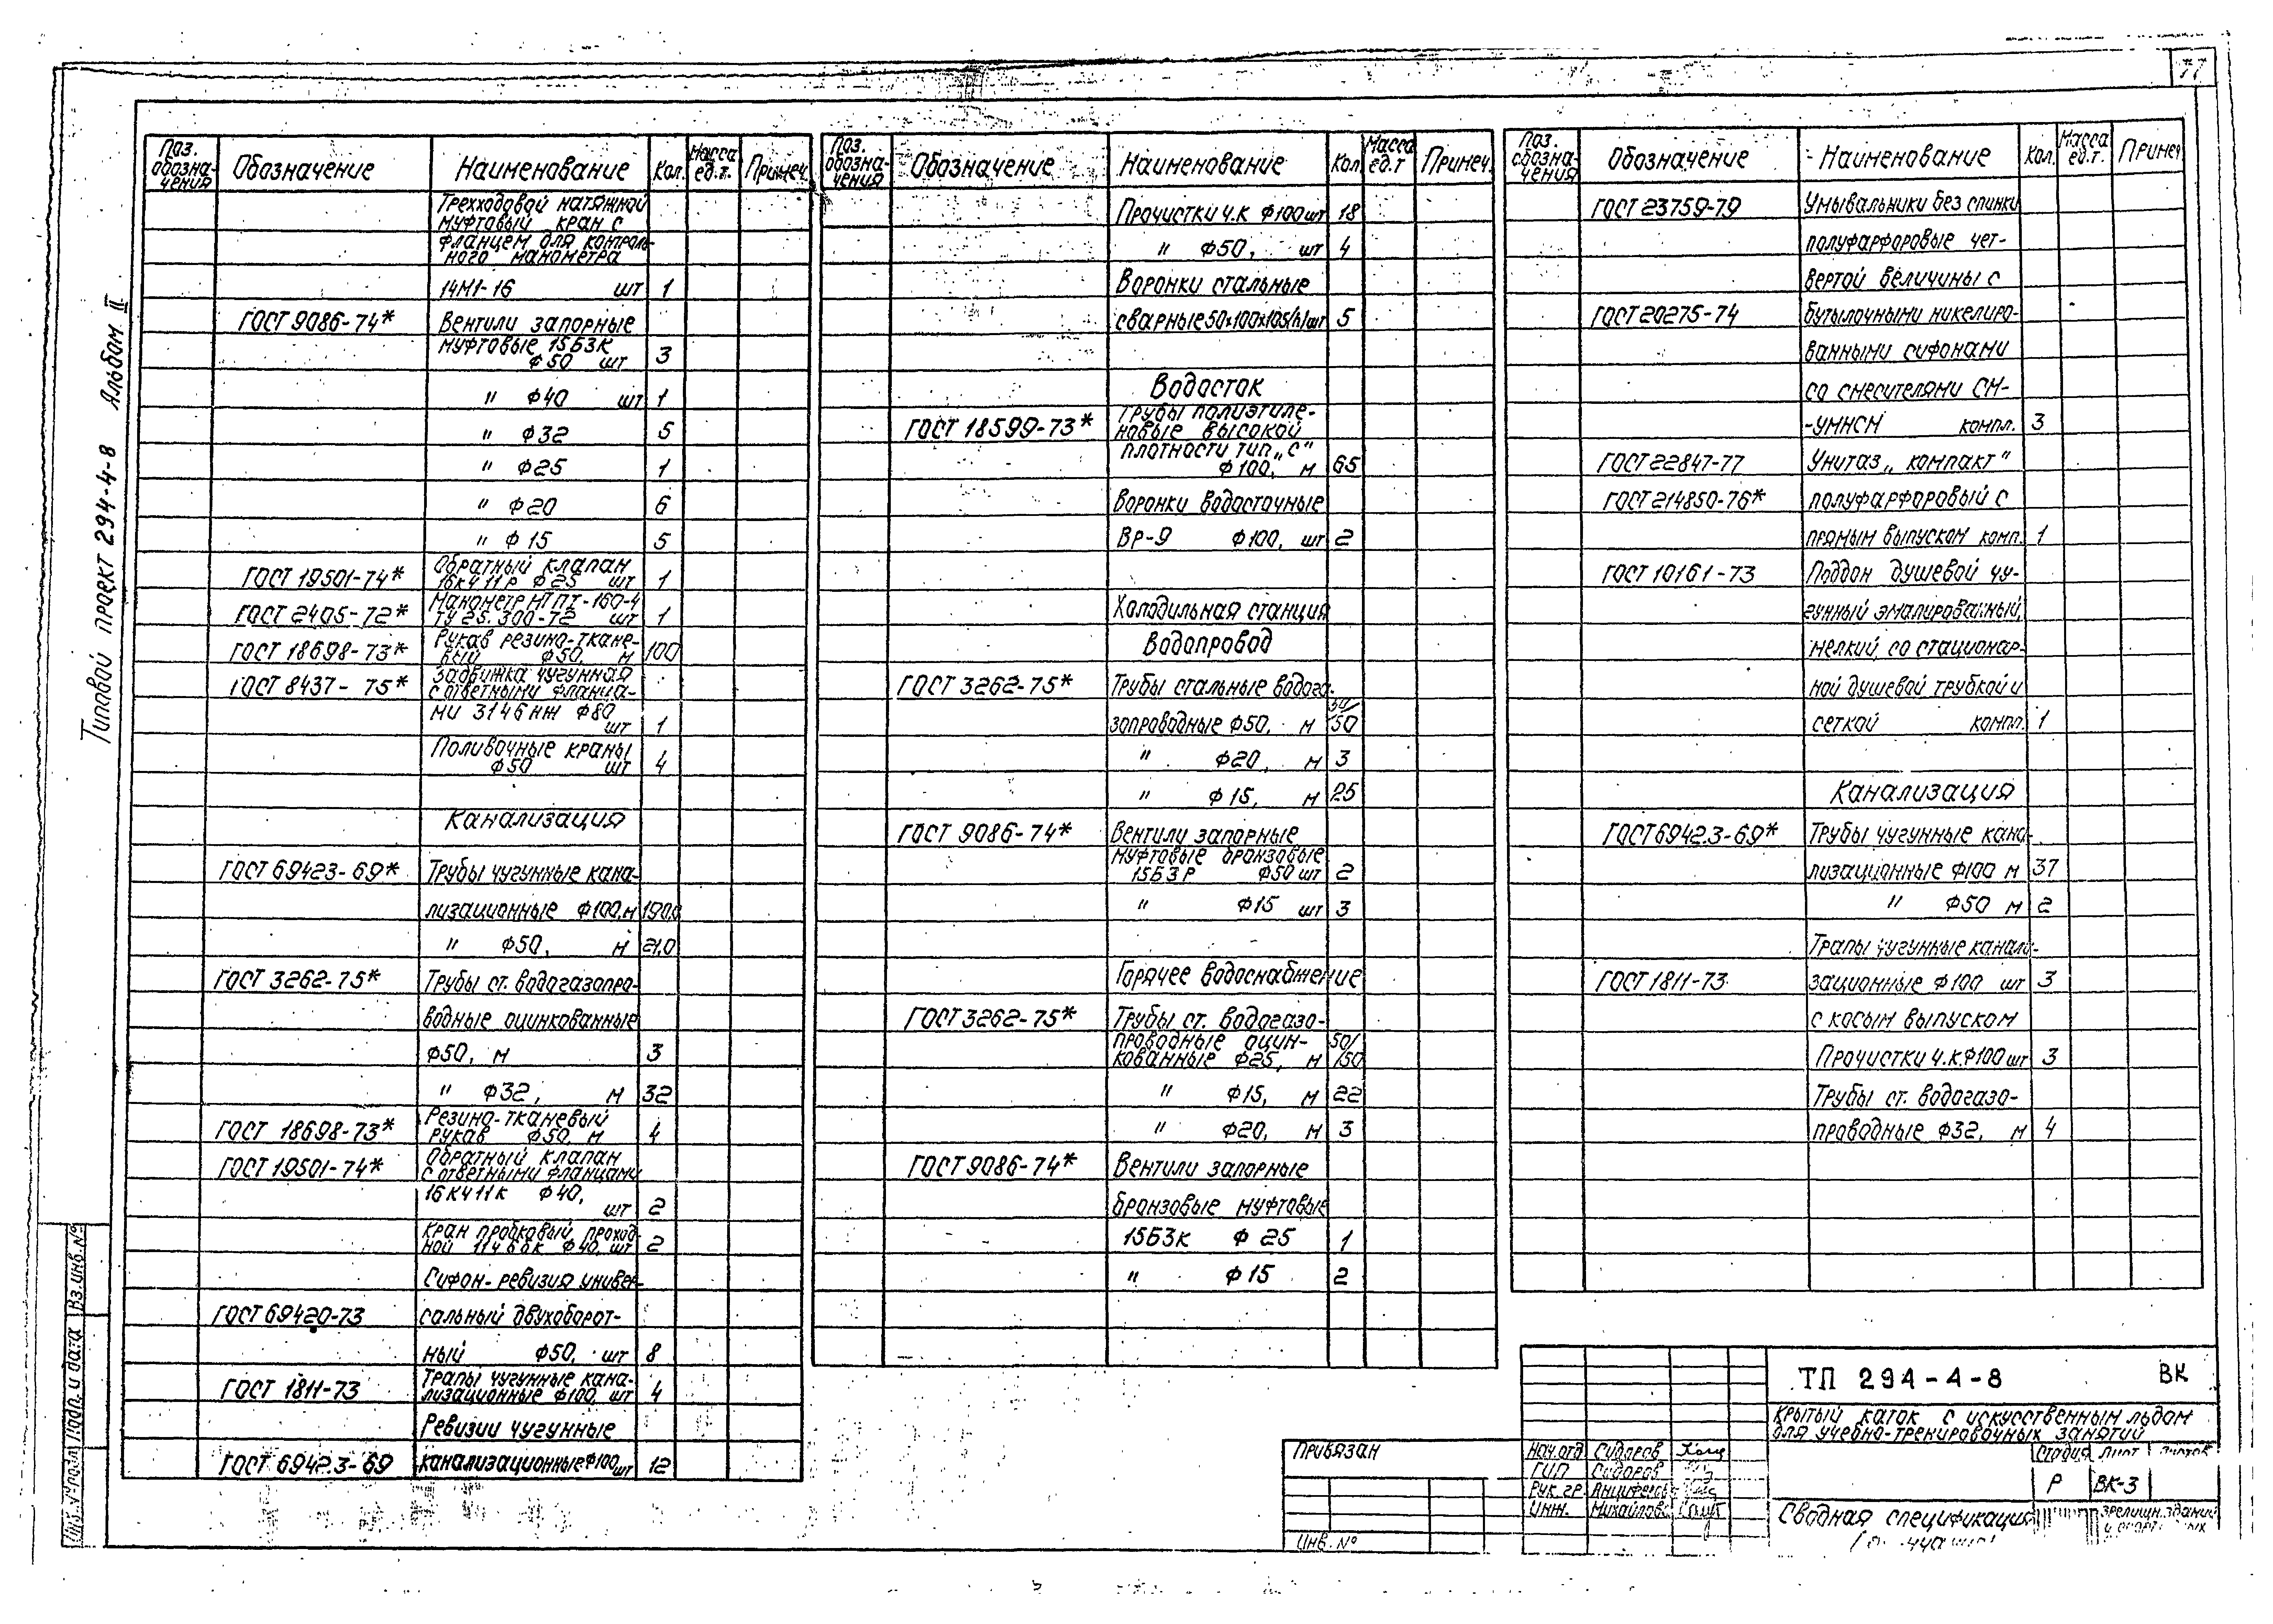 77
Типовой проект 294-4-8 Альбом II
Поз. обозна-чения Обозначение Наименование Кол. Масса ед.т. Примеч.
Трехходовой натяжной
муфтовый кран с
фланцем для контроль-
ного манометра
14М1-16 шт 1
ГОСТ 9086-74* Вентили запорные
муфтовые 15Б3К
ф50 шт 3
" ф40 шт 1
" ф32 5
" ф25 1
" ф20 6
" ф15 5
ГОСТ 19501-74* Обратный клапан
16кч11Р ф25 шт 1
ГОСТ 2405-72* Манометр МТПI-160-4
ТУ 25.300-72 шт 1
ГОСТ 18698-73* Рукав резино-ткане-
вый ф50, м 100
ГОСТ 8437-75* Задвижка чугунная
с ответными фланца-
ми 3146нж ф80
шт 1
Поливочные краны
ф50 шт 4
Канализация
ГОСТ 69423-69* Трубы чугунные кана-
лизационные ф100, м 190,0
" ф50, м 21,0
ГОСТ 3262-75* Трубы ст. водогазопро-
водные оцинкованные
ф50, м 3
" ф32, м 32
ГОСТ 18698-73* Резино-тканевый
рукав ф50, м 4
ГОСТ 19501-74* Обратный клапан
с ответными фланцами
16КЧ11К ф40,
шт 2
Кран пробковый проход-
ной 11ч6бк ф40, шт 2
Сифон-ревизия универ-
ГОСТ 69420-73 сальный двухоборот-
ный ф50, шт 8
ГОСТ 1811-73 Трапы чугунные кана-
лизационные ф100, шт 4
Ревизии чугунные
ГОСТ 6942.3-69 канализационные ф100 шт 12
Поз. обозна-чения Обозначение Наименование Кол. Масса ед.т Примеч.
Прочистки ч.к ф100 шт 18
" ф50, шт 4
Воронки стальные
сварные 50х100х105(h) шт 5
Водосток
ГОСТ 18599-73* Трубы полиэтиле-
новые высокой
плотности тип „С"
ф100, м 65
Воронки водосточные
Вр-9 ф100, шт 2
Холодильная станция
Водопровод
ГОСТ 3262-75* Трубы стальные водога-
запроводные ф50, м 50/50
" ф20, м 3
" ф15, м 25
ГОСТ 9086-74* Вентили запорные
муфтовые бронзовые
15Б3Р ф50 шт 2
" ф15 шт 3
Горячее водоснабжение
ГОСТ 3262-75* Трубы ст. водогазо-
проводные оцин-
кованные ф25, м 50/150
" ф15, м 22
" ф20, м 3
ГОСТ 9086-74* Вентили запорные
бронзовые муфтовые
15Б3К ф25 1
" ф15 2
Поз. обозна-чения Обозначение Наименование Кол. Масса ед.т. Примеч
ГОСТ 23759-79 Умывальники без спинки
полуфарфоровые чет-
вертой величины с
ГОСТ 20275-74 бутылочными никелиро-
ванными сифонами
со смесителями СМ-
-УМНСМ компл. 3
ГОСТ 22847-77 Унитаз „компакт"
ГОСТ 214850-76* полуфарфоровый с
прямым выпуском комп. 1
ГОСТ 10161-73 Поддон душевой чу-
гунный эмалированный,
мелкий, со стационар-
ной душевой трубкой и
сеткой компл. 1
Канализация
ГОСТ 6942.3-69* Трубы чугунные кана-
лизационные ф100 м 37
" ф50 м 2
Трапы чугунные канали-
ГОСТ 1811-73 зационные ф100 шт 3
с косым выпуском
Прочистки ч.к. ф100 шт 3
Трубы ст. водогазо-
проводные ф32, м 4
Вз.инв.№
Подп. и дата
Инв.№подл
Привязан
Инв.№
Нач.отд Сидоров
ГИП Сидоров
Рук.гр. Анциферов
Инж. Михайлова
ТП 294-4-8 ВК
Крытый каток с искусственным льдом
для учебно-тренировочных занятий
Стадия Лист Листов
Р ВК-3
Сводная спецификация
зрелищн. зданий